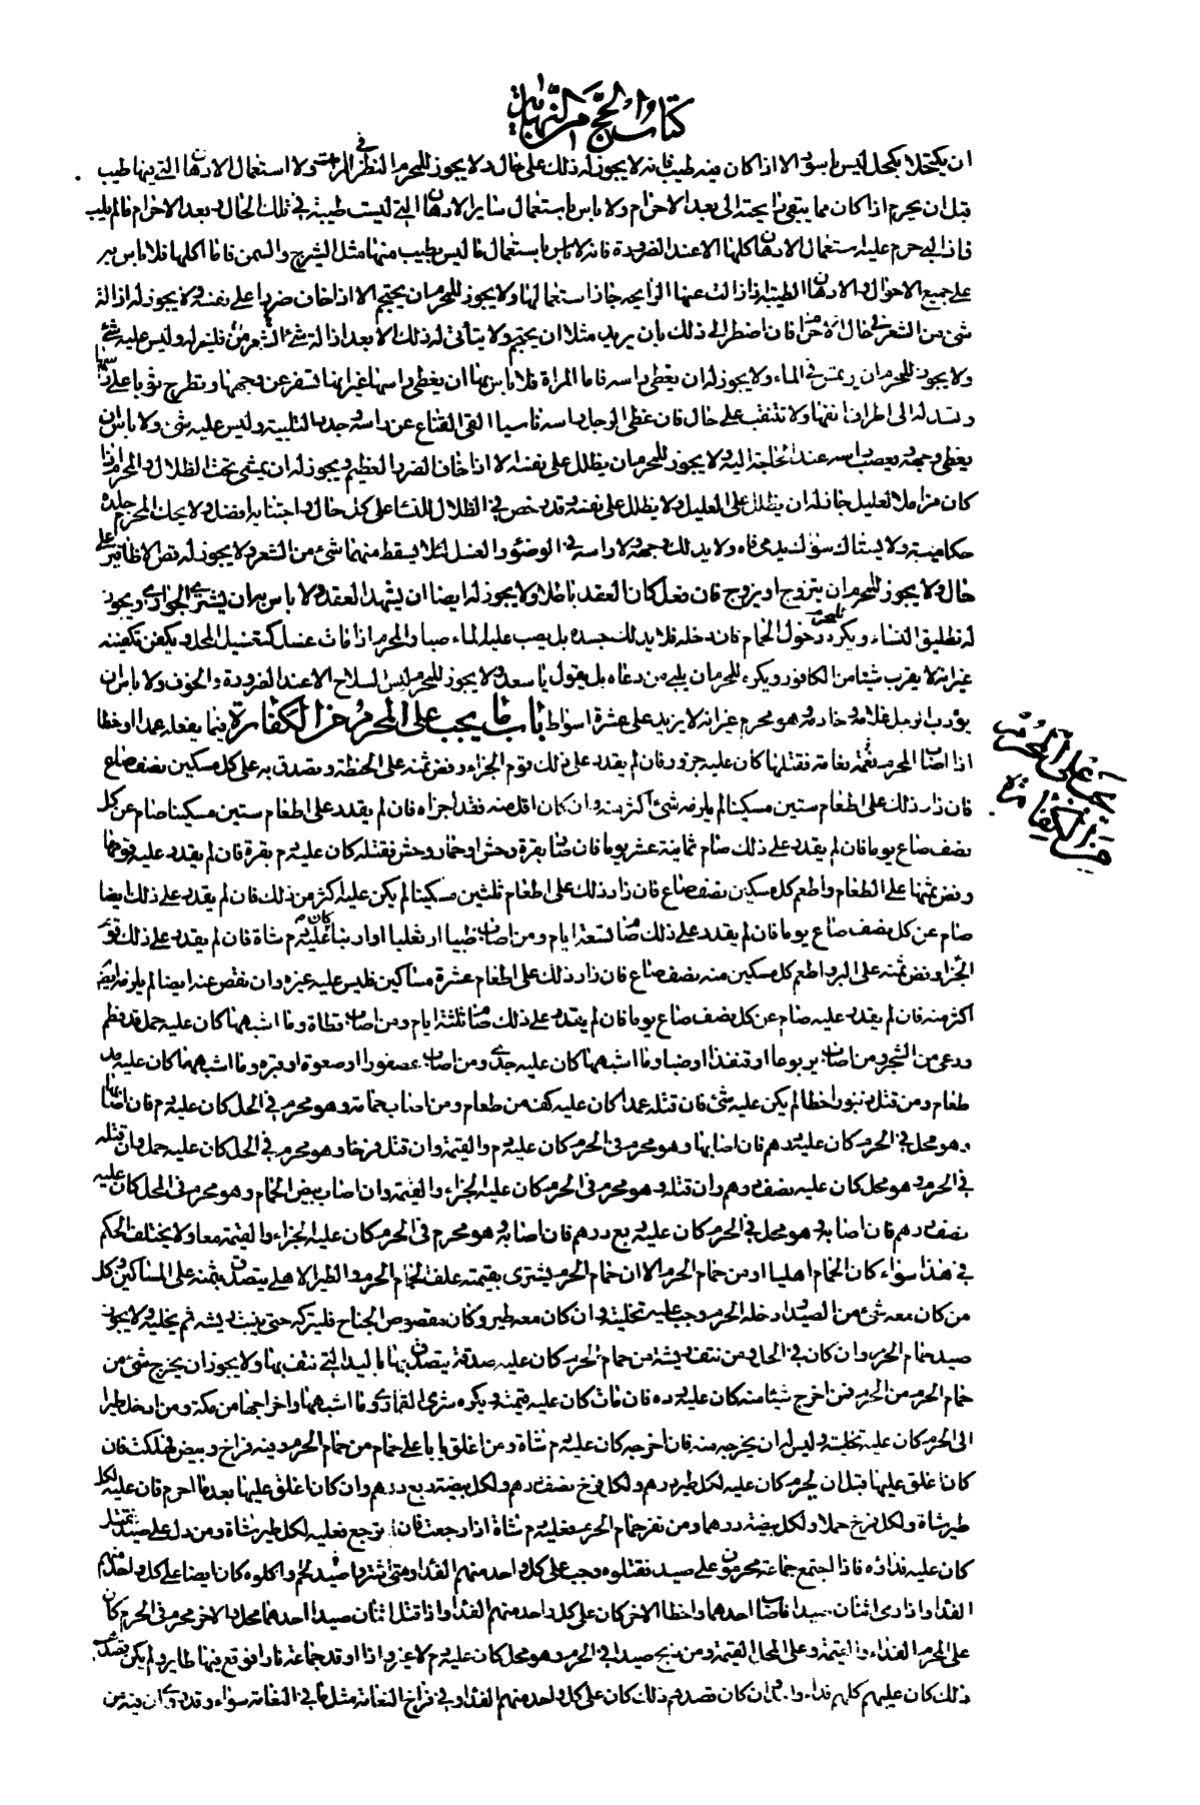 كتاب الحج من النهاية
ان يكتحلا بكحل ليس باسود الا اذا كان فيه طيب فانه لا يجوز له ذلك على حال ولا يجوز للمحرم النظر في المرآت ولا استعمال الادهان التي فيها طيب
قبل ان يحرم اذا كان مما يبقى رايحته الى بعد الاحرام ولا باس باستعمال ساير الادهان التي ليست طيبة في تلك الحال وبعد الاحرام ما لم يلب
فاذا لبى حرم عليه استعمال الادهان كلها الا عند الضرورة فانه لا باس باستعمال ما ليس بطيب منها مثل الشيرج والسمن فاما اكلها فلا باس به
على جميع الاحوال والادهان الطيبة اذا زالت عنها الرايحه جاز استعمالها ولا يجوز للمحرم ان يحتجم الا اذا خاف ضررا على نفسه ولا يجوز له ازالة
شئ من الشعر في حال الاحرام فان اضطر الى ذلك بان يريد مثلا ان يحتجم ولا يتأتى له ذلك الا بعد ازالة شئ من الشعر فليزله وليس عليه شئ
ولا يجوز للمحرم ان يرتمس في الماء ولا يجوز له ان يغطى راسه فاما المراة فلا باس بها ان يغطى راسها غير انها تسفر عن وجهها وتطرح ثوبا على راسها
وتسدله الى اطراف انفها ولا تتنقب على حال فان غطى الرجل راسه ناسيا القى القناع عن راسه وجدد التلبية وليس عليه شئ ولا باس ان
يغطى وجهه ويعصب راسه عند الحاجة اليه ولا يجوز للمحرم ان يظلل على نفسه الا اذا خاف الضرر العظيم ويجوز له ان يمشى تحت الظلال والمحرم اذا
كان مزاملا لعليل جاز له ان يظلل على العليل ولا يظلل على نفسه وقد رخص في الظلال للنساء على كل حال واجتنابه افضل ولا يحك المحرم جلده
حكا يدميه ولا يستاك سواك يدمى فاه ولا يدلك وجهه ولا راسه في الوضوء والغسل لئلا يسقط منهما شئ من الشعر ولا يجوز له قص الاظافير على
حال ولا يجوز للمحرم ان يتزوج او يزوج فان فعل كان العقد باطلا ولا يجوز له ايضا ان يشهد العقد ولا باس به ان يشترى الجوارى ويجوز
له تطليق النساء ويكره للمحرم دخول الحمام فان دخله فلا يدلك جسده بل يصب عليه الماء صبا والمحرم اذا مات غسل كتغسيل المحل ويكفن تكفينه
غير انه لا يقرب شيئا من الكافور ويكره للمحرم ان يلبى من دعاه بل يقول يا سعد ولا يجوز للمحرم لبس السلاح الا عند الضرورة والخوف ولا باس ان
يؤدب الرجل غلامه وخادمه وهو محرم غير انه لا يزيد على عشرة اسواط باب ما يجب على المحرم من الكفارة فيما يفعله عمدا او خطا
اذا اصاب المحرم نعامة فقتلها كان عليه جزور فان لم يقدر على ذلك قوم الجزاء وفض ثمنه على الحنطة وتصدق به على كل مسكين نصف صاع
فان زاد ذلك على اطعام ستين مسكينا لم يلزمه شئ اكثر منه وان كان اقل منه فقد اجزاه فان لم يقدر على اطعام ستين مسكينا صام عن كل
نصف صاع يوما فان لم يقدر على ذلك صام ثمانية عشر يوما فان اصاب بقرة وحش او حمار وحش فقتله كان عليه دم بقرة فان لم يقدر عليه قومها
وفض ثمنها على الطعام واطعم كل مسكين نصف صاع فان زاد ذلك على اطعام ثلثين مسكينا لم يكن عليه اكثر من ذلك فان لم يقدر على ذلك ايضا
صام عن كل نصف صاع يوما فان لم يقدر على ذلك صام تسعة ايام ومن اصاب ظبيا او ثعلبا او ارنبا كان عليه دم شاة فان لم يقدر على ذلك قوم
الجزاء وفض ثمنه على البر واطعم كل مسكين منه نصف صاع فان زاد ذلك على اطعام عشرة مساكين فليس عليه غيره وان نقص عنه ايضا لم يلزمه
اكثر منه فان لم يقدر عليه صام عن كل نصف صاع يوما فان لم يقدر على ذلك صام ثلثة ايام ومن اصاب قطاة وما اشبهها كان عليه حمل قد فطم
ورعى من الشجر ومن اصاب يربوعا او قنفذا او ضبا وما اشبهها كان عليه جدى ومن اصاب عصفورا او صعوة او قبره وما اشبهها كان عليه مد
طعام ومن قتل زنبورا خطا لم يكن عليه شئ فان قتله عمدا كان عليه كف من طعام ومن اصاب حمامة وهو محرم في الحل كان عليه دم فان اصابها
وهو محل في الحرم كان عليه درهم فان اصابها وهو محرم في الحرم كان عليه دم والقيمة وان قتل فرخا وهو محرم في الحل كان عليه حمل وان قتله
في الحرم وهو محل كان عليه نصف درهم وان قتله وهو محرم في الحرم كان عليه الجزاء والقيمة وان اصاب بيض الحمام وهو محرم في الحل كان عليه
نصف درهم فان اصابه وهو محل في الحرم كان عليه ربع درهم فان اصابه وهو محرم في الحرم كان عليه الجزاء والقيمة معا ولا يختلف الحكم
في هذا سواء كان الحمام اهليا او من حمام الحرم الا ان حمام الحرم يشترى بقيمته علف لحمام الحرم والطير الاهلى يتصدق بثمنه على المساكين وكل
من كان معه شئ من الصيد وادخله الحرم وجب عليه تخليته وان كان معه طير وكان مقصوص الجناح فليتركه حتى ينبت ريشه ثم يخليه ولا يجوز
صيد حمام الحرم وان كان في الحل ومن نتف ريشة من حمام الحرم كان عليه صدقة يتصدق بها باليد التي نتف بها ولا يجوز ان يخرج شئ من
حمام الحرم من الحرم فمن اخرج شيئا منه كان عليه رده فان مات كان عليه قيمته ويكره شرى القمارى وما اشبهها واخراجها من مكة ومن ادخل طيرا
الى الحرم كان عليه تخليته وليس له ان يخرجه منه فان اخرجه كان عليه دم شاة ومن اغلق بابا على حمام من حمام الحرم وفيه فراخ وبيض فهلكت فان
كان اغلق عليها قبل ان يحرم كان عليه لكل طير درهم ولكل فرخ نصف درهم ولكل بيضة ربع درهم وان كان اغلق عليها بعد ما احرم فان عليه لكل
طير شاة ولكل فرخ حملا ولكل بيضة درهما ومن نفر حمام الحرم فعليه دم شاة اذا رجعت فان لم ترجع فعليه لكل طير شاة ومن دل على صيد فقتل
كان عليه فداؤه فاذا اجتمع جماعة محرمون على صيد فقتلوه وجب على كل واحد منهم الفداء ومتى اشتروا صيد لحم واكلوه كان ايضا على كل واحد منهم
الفداء واذا رمى اثنان صيدا فاصاب احدهما واخطا الاخر كان على كل واحد منهم الفداء واذا قتل اثنان صيدا احدهما محل والاخر محرم في الحرم كان
على المحرم الفداء والقيمة وعلى المحل القيمة ومن ذبح صيدا في الحرم وهو محل كان عليه دم لا غير واذا اوقد جماعة نارا فوقع فيها طاير ولم يكن قصدهم
ذلك كان عليهم كلهم فداء واحد وان كان قصدهم ذلك كان على كل واحد منهم الفداء وفي فراخ النعامة مثل ما في النعامة سواء وقد روى ان فيه من
يجب على المحرم
من الكفارة